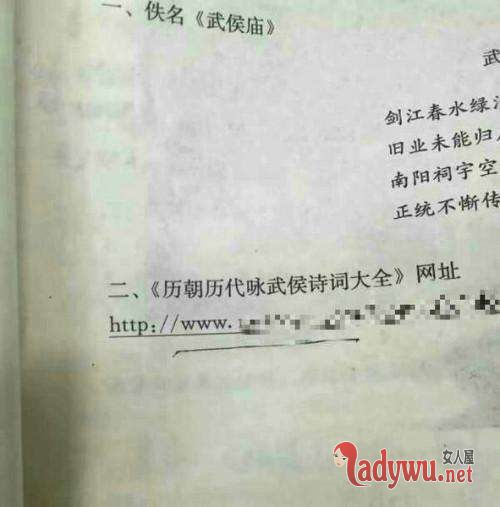 一、佚名《武侯庙》
武
剑江春水绿
旧业未能归
南阳祠宇空
正统不惭传
二、《历朝历代咏武侯诗词大全》网址
http://www.
女人屋
ladywu.net